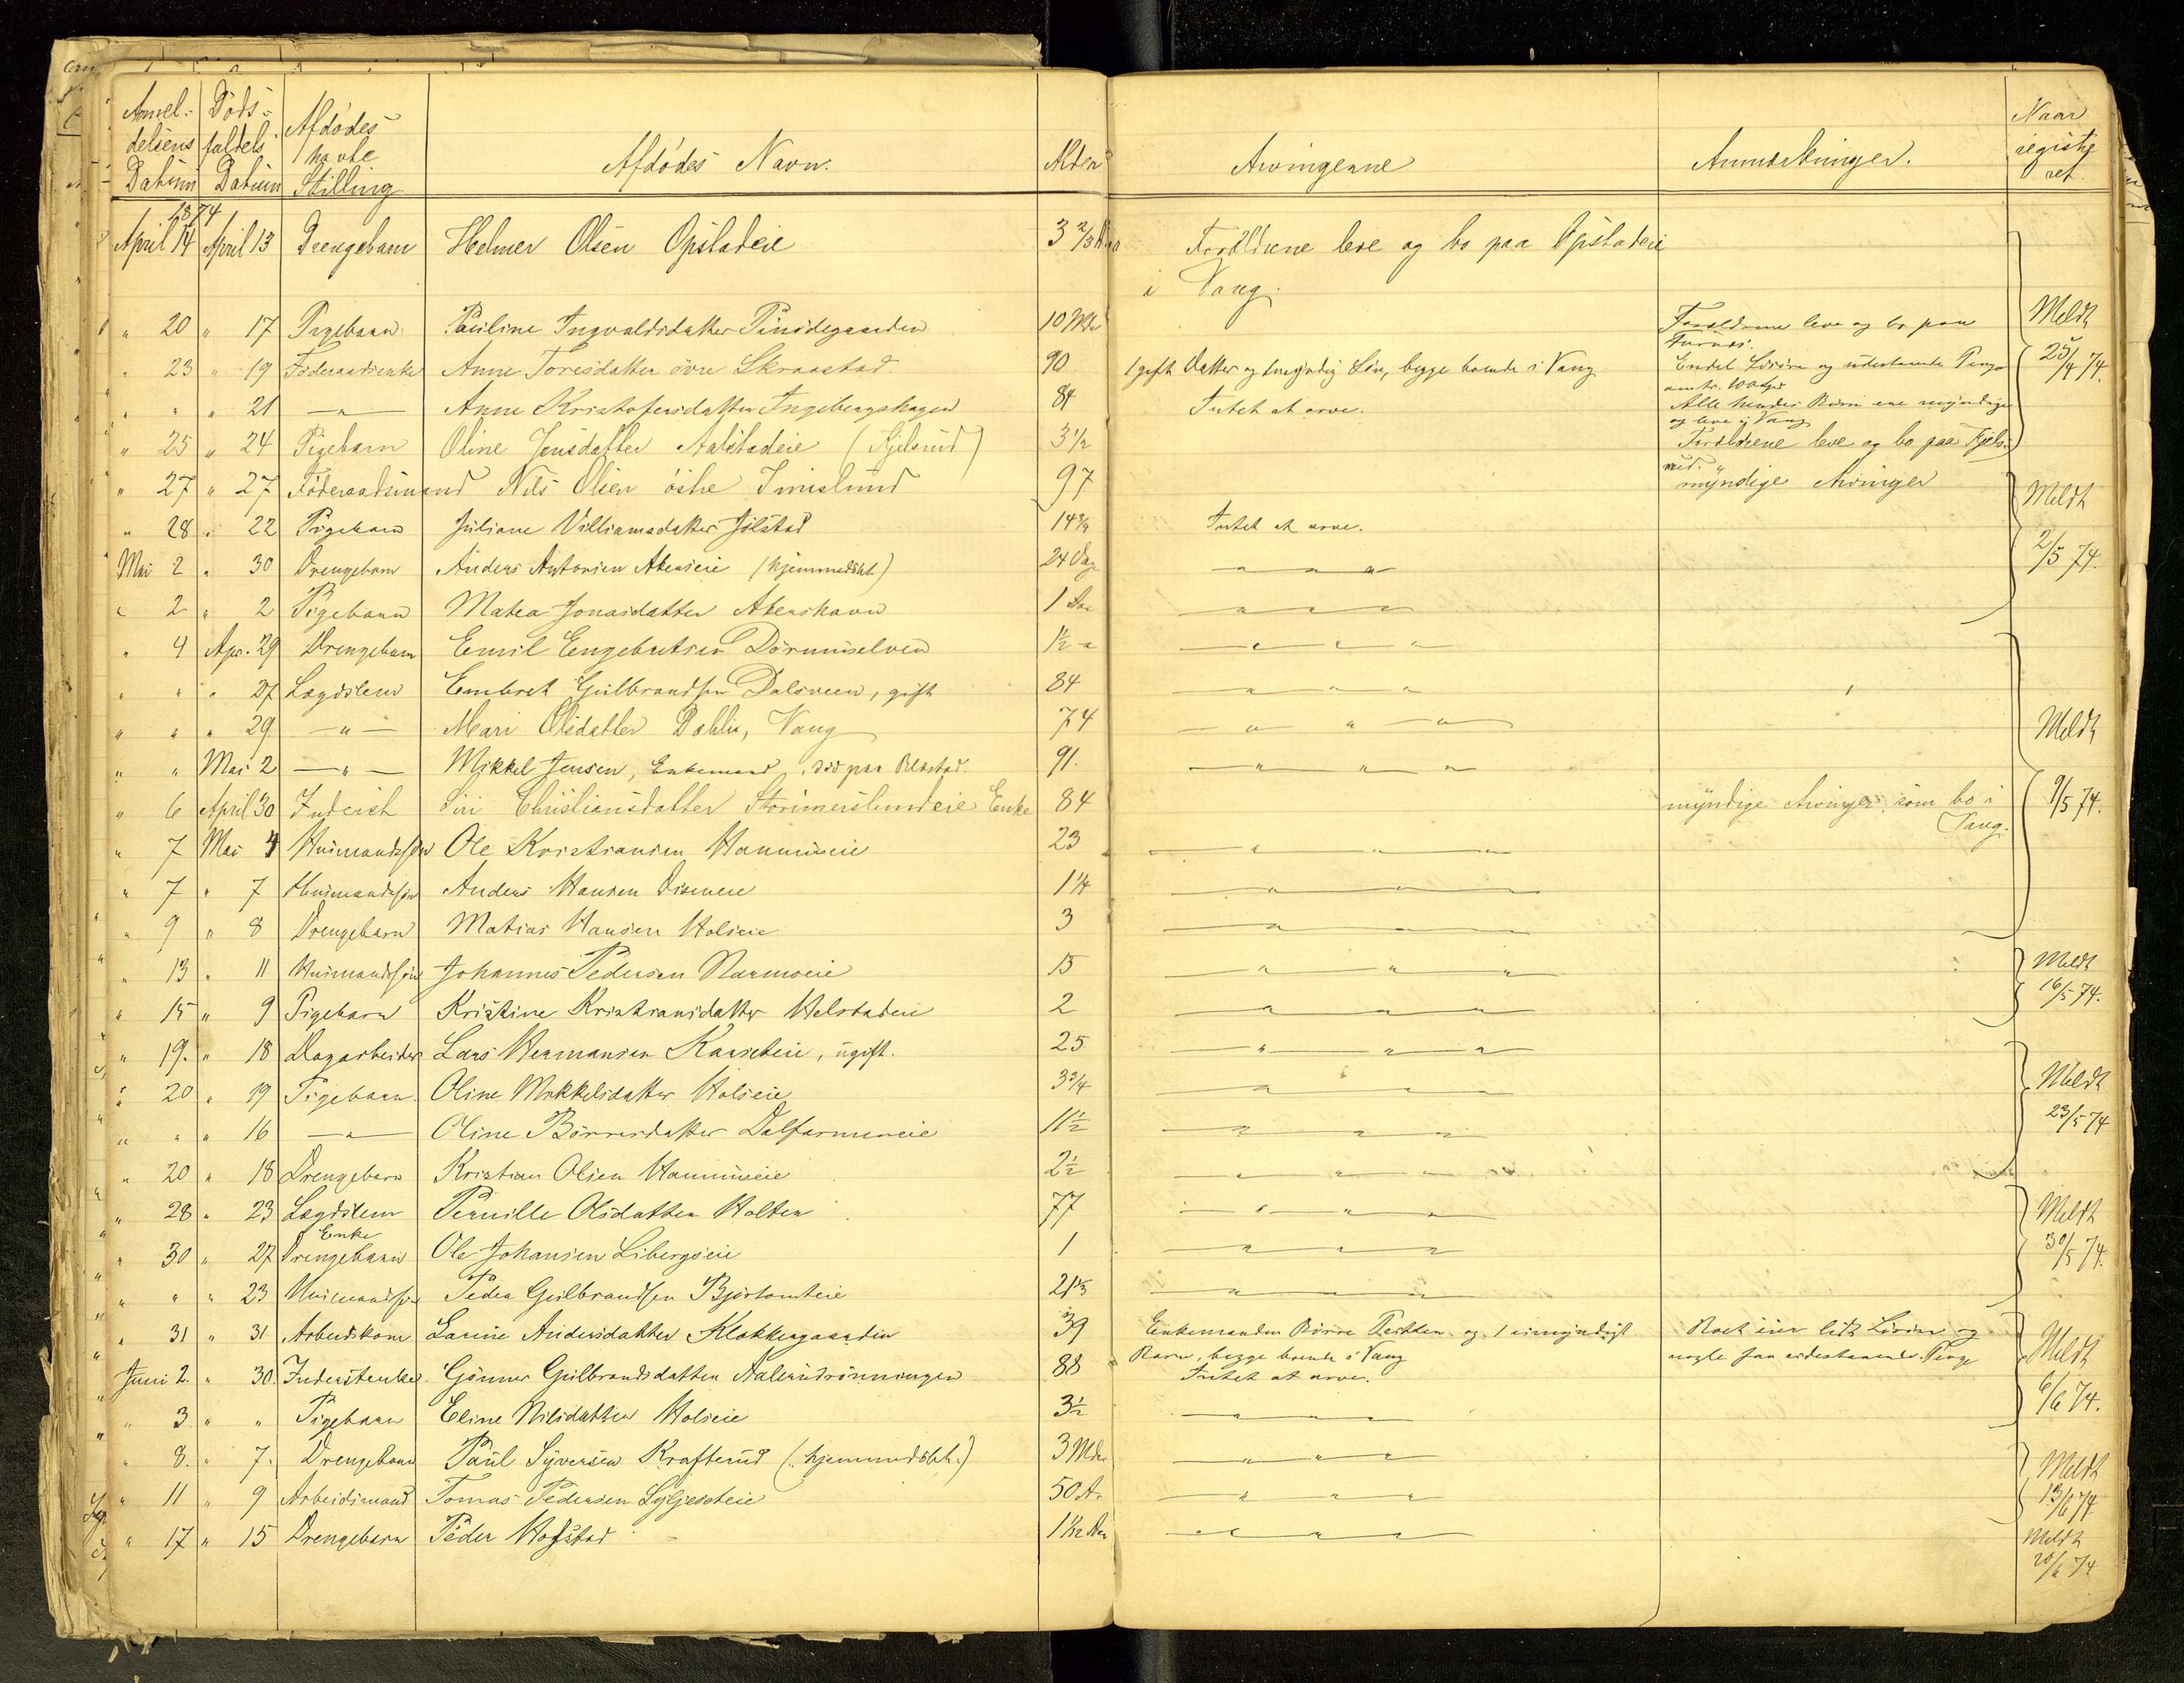 Anmel- Døds- Afdødes Afdødes Navn. Alder Arvingerne Anmærkninger. Naar
delsens faldets havte registe
Datum Datum Stilling ret
1874
April 14 April 13 Drengebarn Helmer Olsen Opstadeie 3 2/3 Forældrene leve og bo paa Opstadeie
i Vang.
" 20 " 17 Pigebarn Pauline Ingvaldsdatter 10 Mdr Forældrene leve og bo paa Furnæs. Meldt
" 23 " 19 Føderaadsenke Anne Toresdatter øvre Skraastad 90 1 gift Datter og 1 myndig Søn, begge boende i Vang Endel Løsøre og udestaaende Penge 25/4 74.
" " " 21 —"— Anne Kristofersdatter Ingebergshagen 84 Intet at arve. Alle hendes Børn ere myndige og leve i Vang
" 25 " 24 Pigebarn Oline Jensdatter Aalstadeie (Kjelsrud) 3 1/2 Forældrene leve og bo paa Kjels-
rud.
" 27 " 27 Føderaadsmand Nils Olsen østre Imislund 97 myndige Arvinger Meldt
" 28 " 22 Pigebarn Juliane Villiamsdatter Jølstad 14 3/4 Intet at arve.
Mai 2 " 30 Drengebarn Anders Antonsen Akerseie (hjemmedøbt) 24 Dag — " — " — " — 2/5 74.
" 2 " 2 Pigebarn Matea Jonasdatter Akershavn 1 — " — " — " —
" 4 Apr. 29 Drengebarn Emil Engebretsen 1 1/2 " — " — " — " —
" " " 27 Lægdslem Embret Gulbrandsen Dalsveen, gift 84 — " — " — " —
" " " 29 —"— Mari Olsdatter Dahlie, Vang 74 — " — " — " — Meldt
" " Mai 2 —"— Mikkel Jensen, Enkemand, død paa 91. — " — " — " —
" 6 April 30 Inderst Siri Christiansdatter Storimerslundeie Enke 84 myndige Arvinger, som bo i 9/5 74.
Vang.
" 7 Mai 4 Husmandssøn Ole Kristiansen 23 — " — " — " —
" 7 " 7 Husmandssøn Anders Hansen Diseneie 1 1/4 — " — " — " —
" 9 " 8 Drengebarn Matias Hansen Holseie 3 — " — " — " —
" 13 " 11 Husmandssøn Johannes Pedersen 15 — " — " — " — Meldt
" 15 " 9 Pigebarn Kristine Kristiansdatter Helstadeie 2 — " — " — " — 16/5 74.
" 19. " 18 Dagarbeider Lars Hermansen, ugift. 25 — " — " — " —
" 20 " 19 Pigebarn Oline Mikkelsdatter Holseie 3 3/4 — " — " — " — Meldt
" " " 16 —"— Oline Børresdatter Dalfarmeneie 11 1/2 — " — " — " — 23/5 74
" 20 " 18 Drengebarn Kristian Olsen 2 1/2 — " — " — " —
" 28 " 23 Lægdslem Pernille Olsdatter Holten 77 — " — " — " — Meldt
Enke
" 30 " 27 Drengebarn Ole Johansen Libergseie 1 — " — " — " — 30/5 74.
" " " 23 Husmandssøn Peder Gulbrandsen — " — " — " —
" 31 " 31 Arbeidskone Larine Andersdatter Klokkergaarden 39 Enkemanden Børre og 1 umyndigt Boet eier lidt Løsøre og Meldt
Barn, begge boende i Vang nogle faa udestaaende Penge
Juni 2. " 30. Inderstenke Gunner Gulbrandsdatter 88 Intet at arve.
" 3 " " Pigebarn Eline Nilsdatter Holseie 3 1/2 — " — " — " — 6/6 74.
" 8. " 7. Drengebarn Paul Syversen Krafterud (hjemmedøbt.) 3 Mdr. — " — " — " — Meldt
" 11 " 9 Arbeidsmand Tomas Pedersen 50 A. — " — " — " — 13/6 74
" 17 " 15 Drengebarn Peder Hofstad 1 1/12 Aar — " — " — " — Meldt
20/6 74